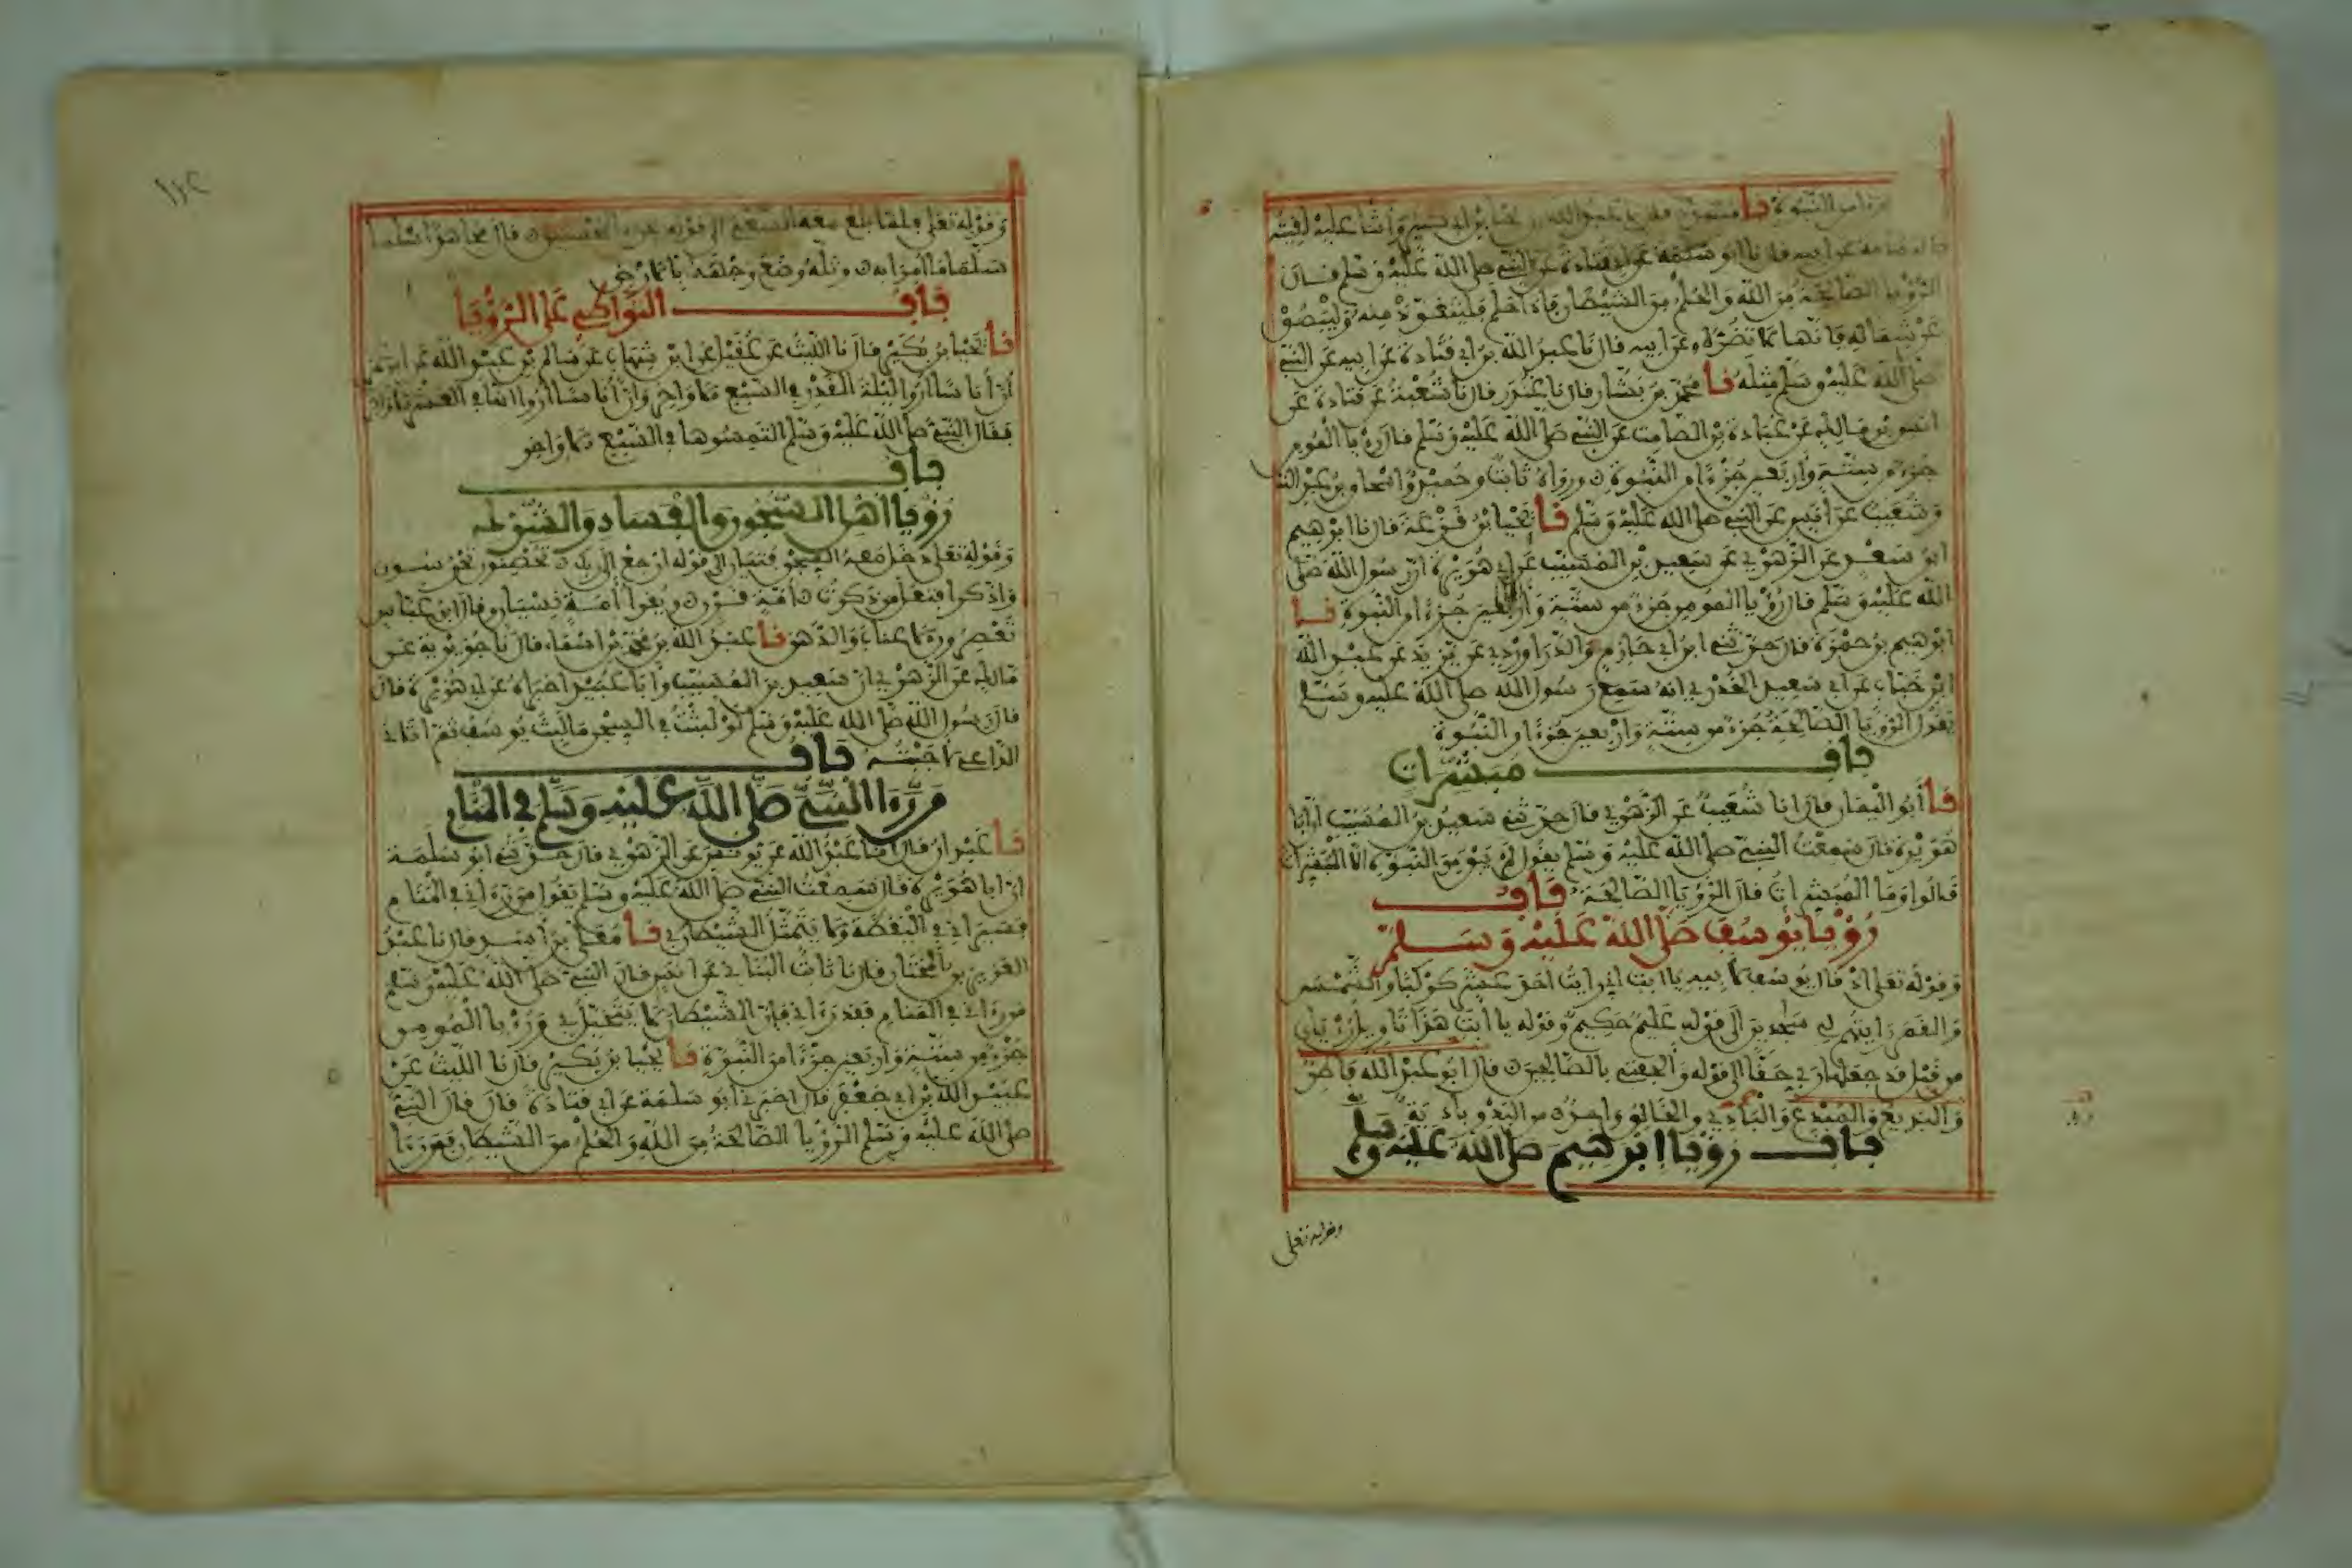 من النبوة نا مسدد قال نا عبد الله بن يحيا بن أبي كثير وأثنا عليه لقيته
باليمامة عن ابيه قال نا ابو سلمة عن ابي قتادة عن النبي صلى الله عليه وسلم قال
الرؤيا الصالحة من الله والحلم من الشيطان فاذا حلم فليتعوذ منه وليبصق
عن شماله فانها لا تضره وعن ابيه قال نا عبد الله بن ابي قتادة عن ابيه عن النبي
صلى الله عليه وسلم مثله نا محمد بن بشار قال نا غندر قال نا شعبة عن قتادة عن
انس بن مالك عن عبادة بن الصامت عن النبي صلى الله عليه وسلم قال رؤيا المومن
جزء من ستة واربعين جزءا من النبوة ورواه ثابت وحميد واسحاق بن عبد الله
وشعيب عن انس عن النبي صلى الله عليه وسلم نا يحيا بن قزعة قال نا ابرهيم
ابن سعد عن الزهري عن سعيد بن المسيب عن ابي هريرة ان رسول الله صلى
الله عليه وسلم قال رؤيا المومن جزء من ستة واربعين جزءا من النبوة نا
ابرهيم بن حمزة قال حدثني ابن ابي حازم والدراوردي عن يزيد عن عبد الله
ابن خباب عن ابي سعيد الخدري انه سمع رسول الله صلى الله عليه وسلم
يقول الرؤيا الصالحة جزء من ستة واربعين جزءا من النبوة
باب مبشرات
نا أبو اليمان قال انا شعيب عن الزهري قال حدثني سعيد بن المسيب ان ابا
هريرة قال سمعت النبي صلى الله عليه وسلم يقول لم يبق من النبوة الا المبشرات
قالوا وما المبشرات قال الرؤيا الصالحة باب
رؤيا يوسف صلى الله عليه وسلم
وقوله تعلى اذ قال يوسف لابيه ياابت اني رايت احد عشر كوكبا والشمس
والقمر رايتهم لي سجدين الى قوله عليم حكيم وقوله ياابت هذا تاويل رؤياي
من قبل قد جعلها ربي حقا الى قوله والحقني بالصالحين قال ابو عبد الله فاطر
والبديع والمبدع والبادئ والخالق واحد من البدو بادية
باب رؤيا ابرهيم صلى الله عليه وسلم
وقوله تعلى
١٢٤
وقوله تعلى فلما بلغ معه السعي الى قوله نجزي المحسنين قال مجاهد أسلما
سلما ما أمرا به وتله وضع وجهه بالارض
باب التواطي على الرؤيا
نا يحيا بن بكير قال نا الليث عن عقيل عن ابن شهاب عن سالم بن عبد الله عن ابن عمر
أن أناسا أروا ليلة القدر في السبع الاواخر وان أناسا أروا انها في العشر الاواخر
فقال النبي صلى الله عليه وسلم التمسوها في السبع الاواخر
باب
رؤيا أهل السجون والفساد والشرك
وقوله تعلى ودخل معه السجن فتيان الى قوله ارجع الى ربك تحصنون تحرسون
واذكر افتعل من ذكرت أمة قرن ويقرأ أمه نسيان وقال ابن عباس
تعصرون الاعناب والدهن نا عبد الله بن محمد بن اسماء قال نا جويرية عن
مالك عن الزهري ان سعيد بن المسيب وأبا عبيد أخبراه عن ابي هريرة قال
قال رسول الله صلى الله عليه وسلم لو لبثت في السجن ما لبث يوسف ثم اتاني
الداعي لاجبته باب
من رءا النبي صلى الله عليه وسلم في المنام
نا عبدان قال انا عبد الله عن يونس عن الزهري قال حدثني ابو سلمة
ان ابا هريرة قال سمعت النبي صلى الله عليه وسلم يقول من رءاني في المنام
فسيراني في اليقظة ولا يتمثل الشيطان بي نا معلى بن أسد قال نا عبد
العزيز بن المختار قال نا ثابت البناني عن انس قال النبي صلى الله عليه وسلم
من رءاني في المنام فقد رءاني فان الشيطان لا يتخيل بي ورؤيا المومن
جزء من ستة واربعين جزءا من النبوة نا يحيا بن بكير قال نا الليث عن
عبيد الله بن ابي جعفر قال اخبرني أبو سلمة عن ابي قتادة قال قال النبي
صلى الله عليه وسلم الرؤيا الصالحة من الله والحلم من الشيطان فمن رءا